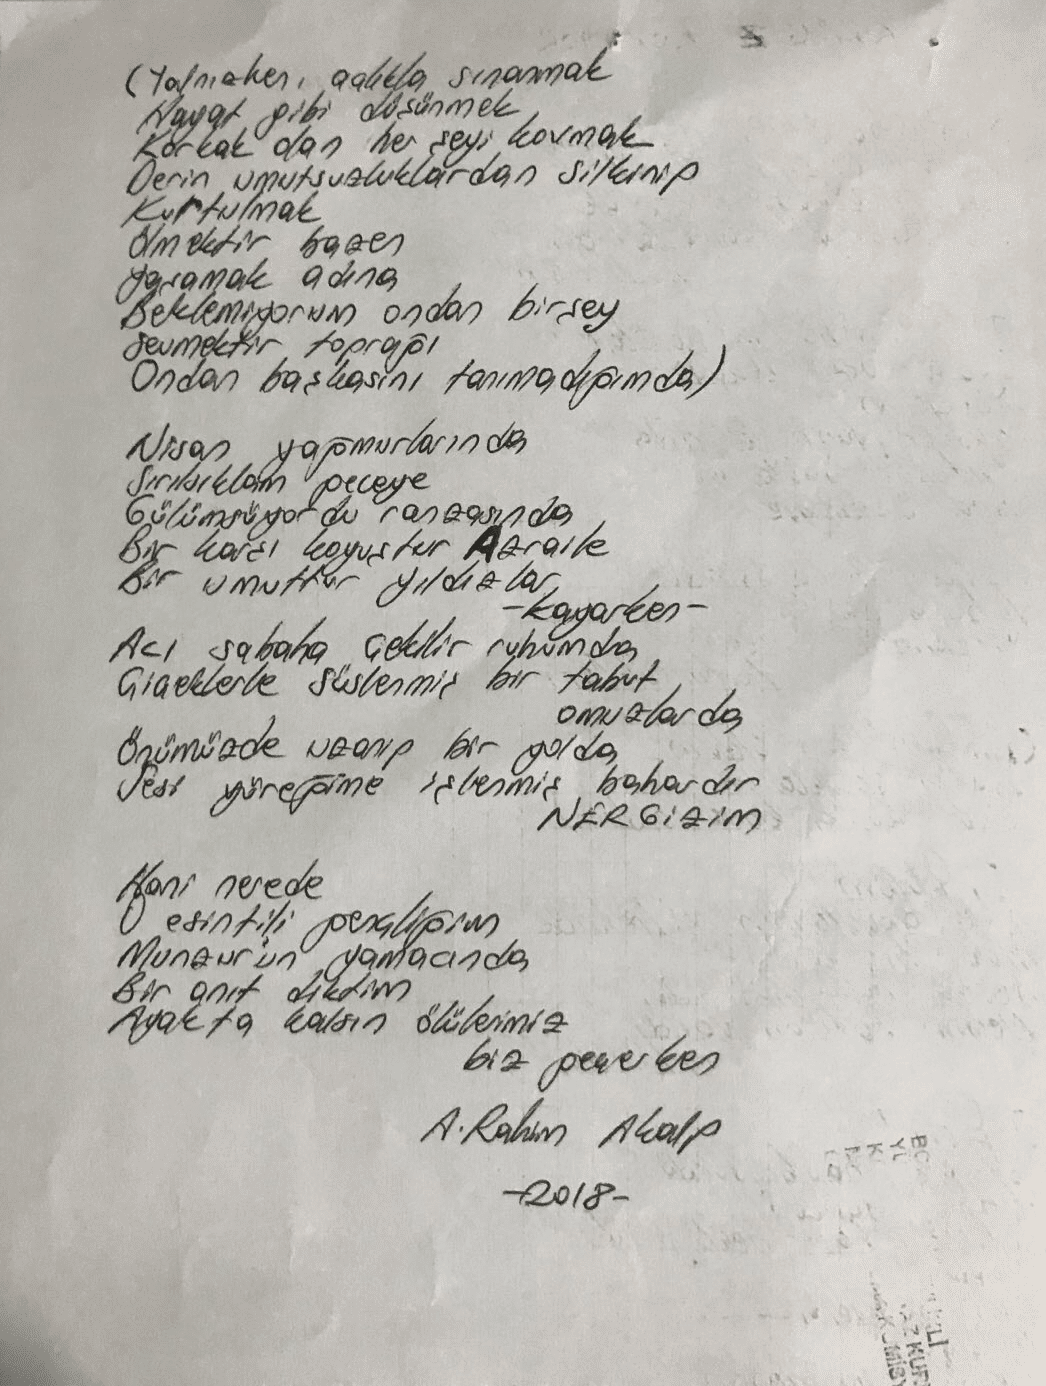 (Yalnızken, açlıkla sınanmak
Hayat gibi düşünmek
Korkak dan her şeyi kovmak
Derin umutsuzluklardan silkinip
Kurtulmak
Ölmektir bazen
yaşamak adına
Beklemiyorum ondan birşey
Sevmektir toprağı
Ondan başkasını tanımadığımda)
Nisan yağmurlarında
Sırılsıklam geceye
Gülümsüyordu ranzasında
Bir karşı koyuştur Azraile
Bir umuttur yıldızlar
-kayarken-
Acı sabaha çekilir ruhumda
Çiçeklerle süslenmiş bir tabut
omuzlarda
Önümüzde uzanıp bir yolda
Sesi yüreğime işlenmiş bahardır
NERGİZİM
Hani nerede
O esintili gençliğim
Munzur'un yamacında
Bir anıt diktim
Ayakta kalsın ölülerimiz
biz geçerken
A. Rahim Akalp
-2018-